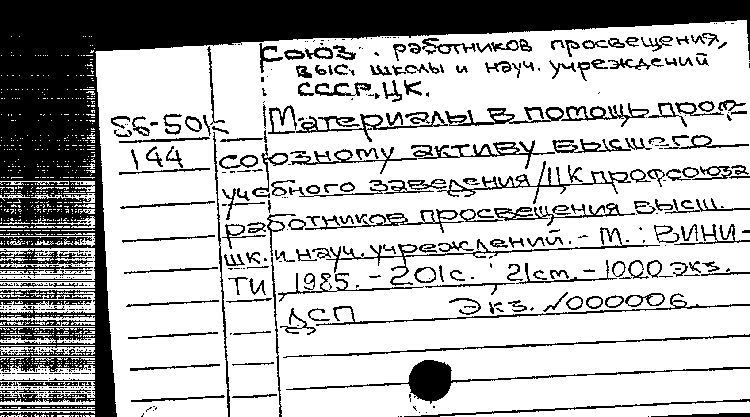 СОЮЗ. работников просвещения,
выс. школы и науч. учреждений
СССР. ЦК.
56-50к Материалы в помощь проф-
144 союзному активу высшего
учебного заведения/ЦК профсоюза
работников просвещения высш.
шк. и науч. учреждений. - М.: ВИНИ-
ТИ, 1985. - 201с.; 21см. - 1000 экз.
ДСП Экз. №000006.